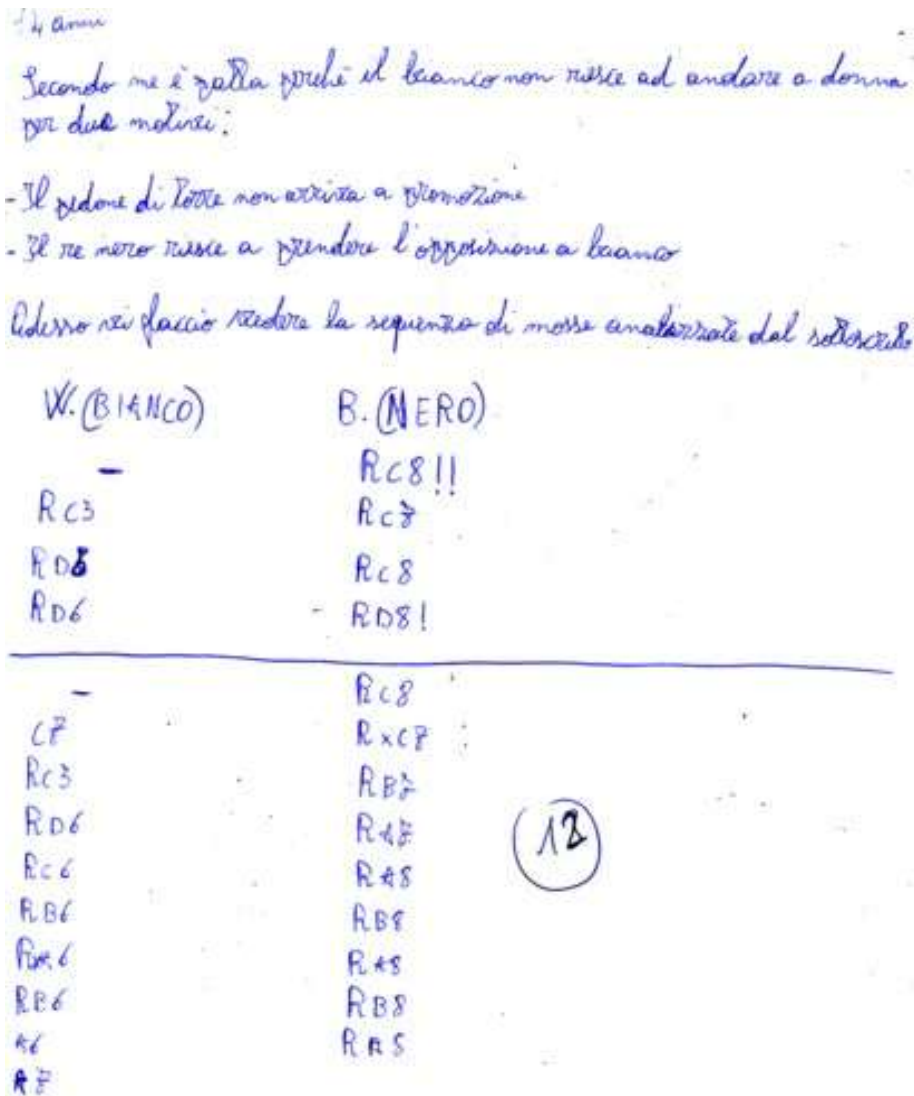 14 anni
Secondo me è patta perché il bianco non riesce ad andare a donna
per due motivi:
- Il pedone di Torre non arriva a promozione
- Il re nero riesce a prendere l'opposizione a bianco
Adesso vi faccio vedere la sequenza di mosse analizzate dal sottoscritto
W. (BIANCO) B. (NERO)
- RC8!!
RC3 RC7
RD RC8
RD6 - RD8!
- RC8
C7 RxC7
RC3 RB7
RD6 RA7
12
RC6 RA8
RB6 RB8
RA6 RA8
RB6 RB8
A6 RA8
A7